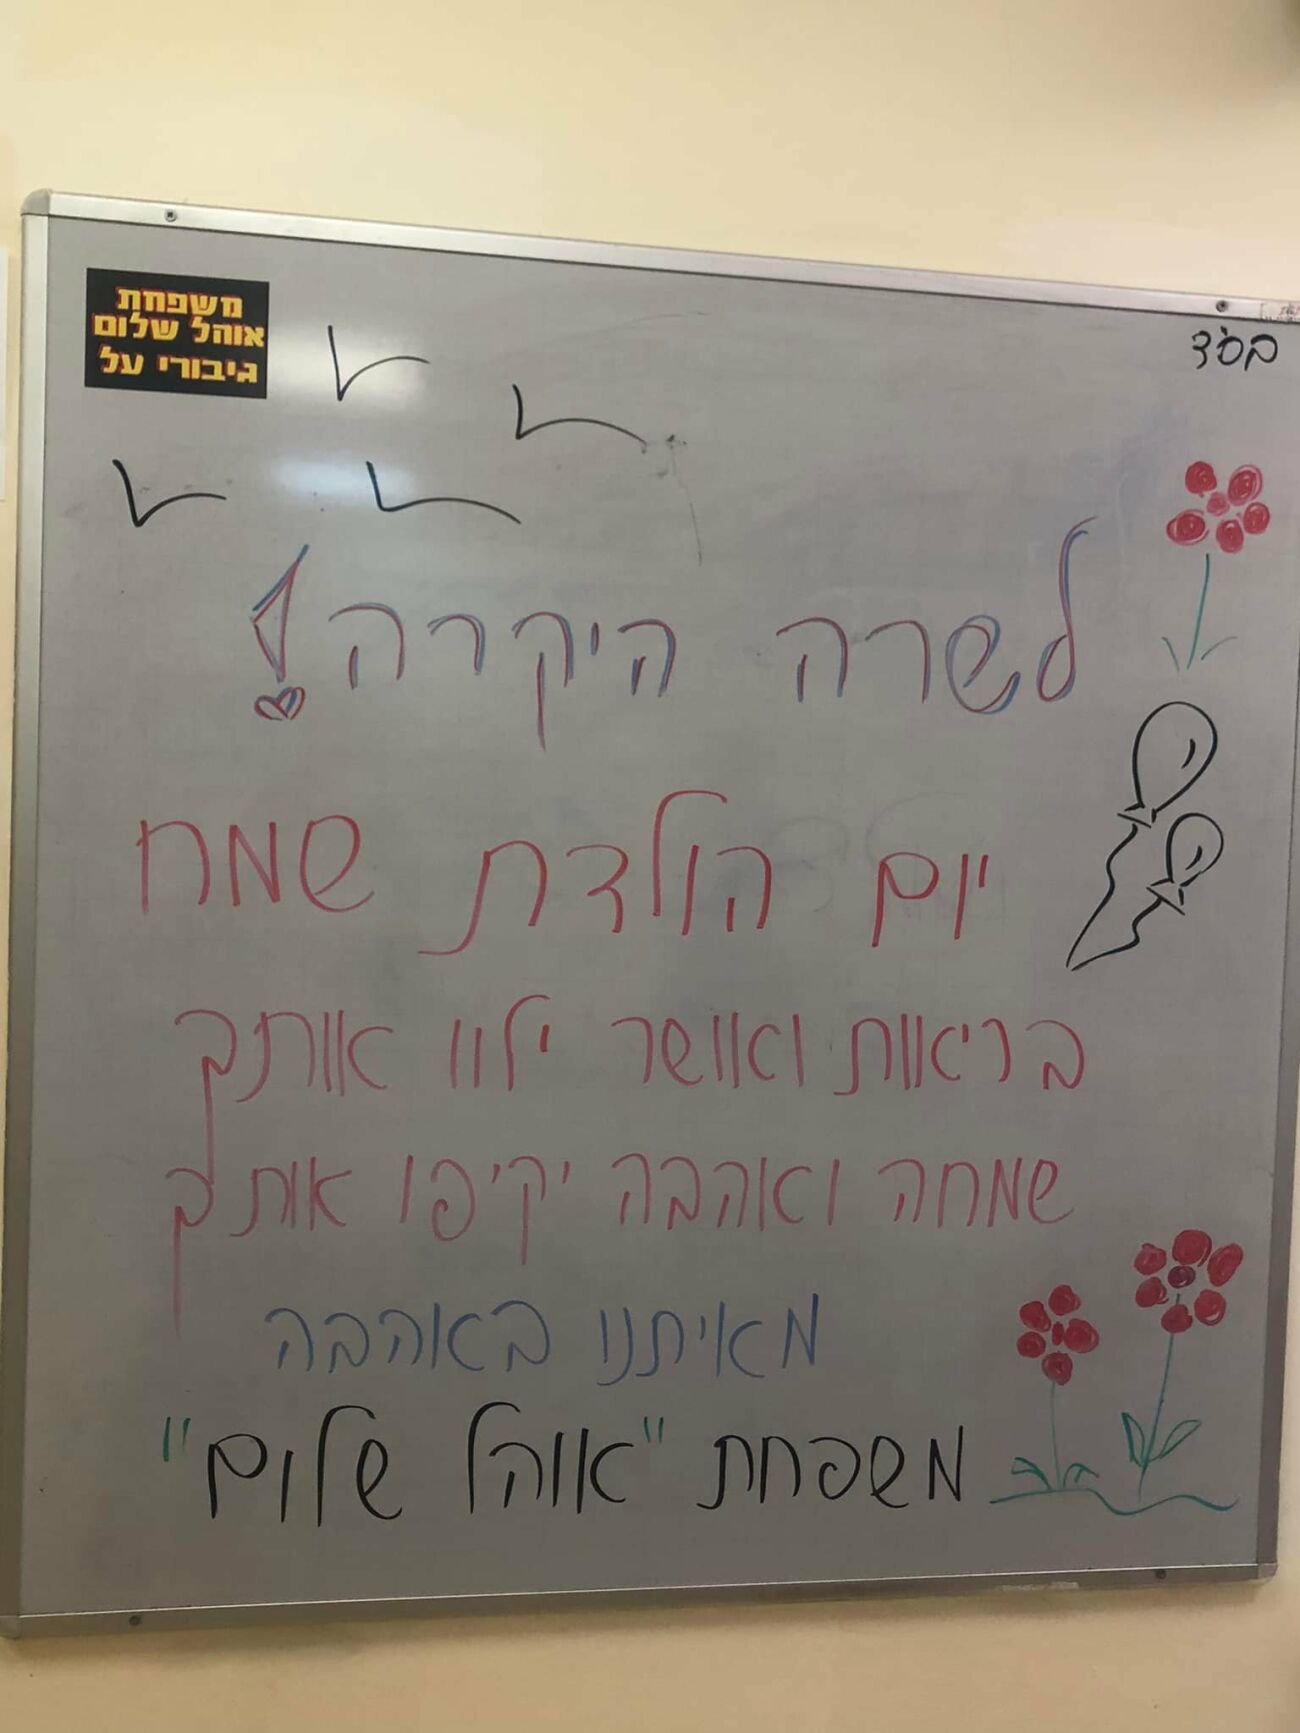 בס"ד
משפחת
אוהל שלום
גיבורי על
לשרה היקרה!
יום הולדת שמח
בריאות ואושר ילוו אותך
שמחה ואהבה יקיפו אותך
מאיתנו באהבה
משפחת "אוהל שלום"